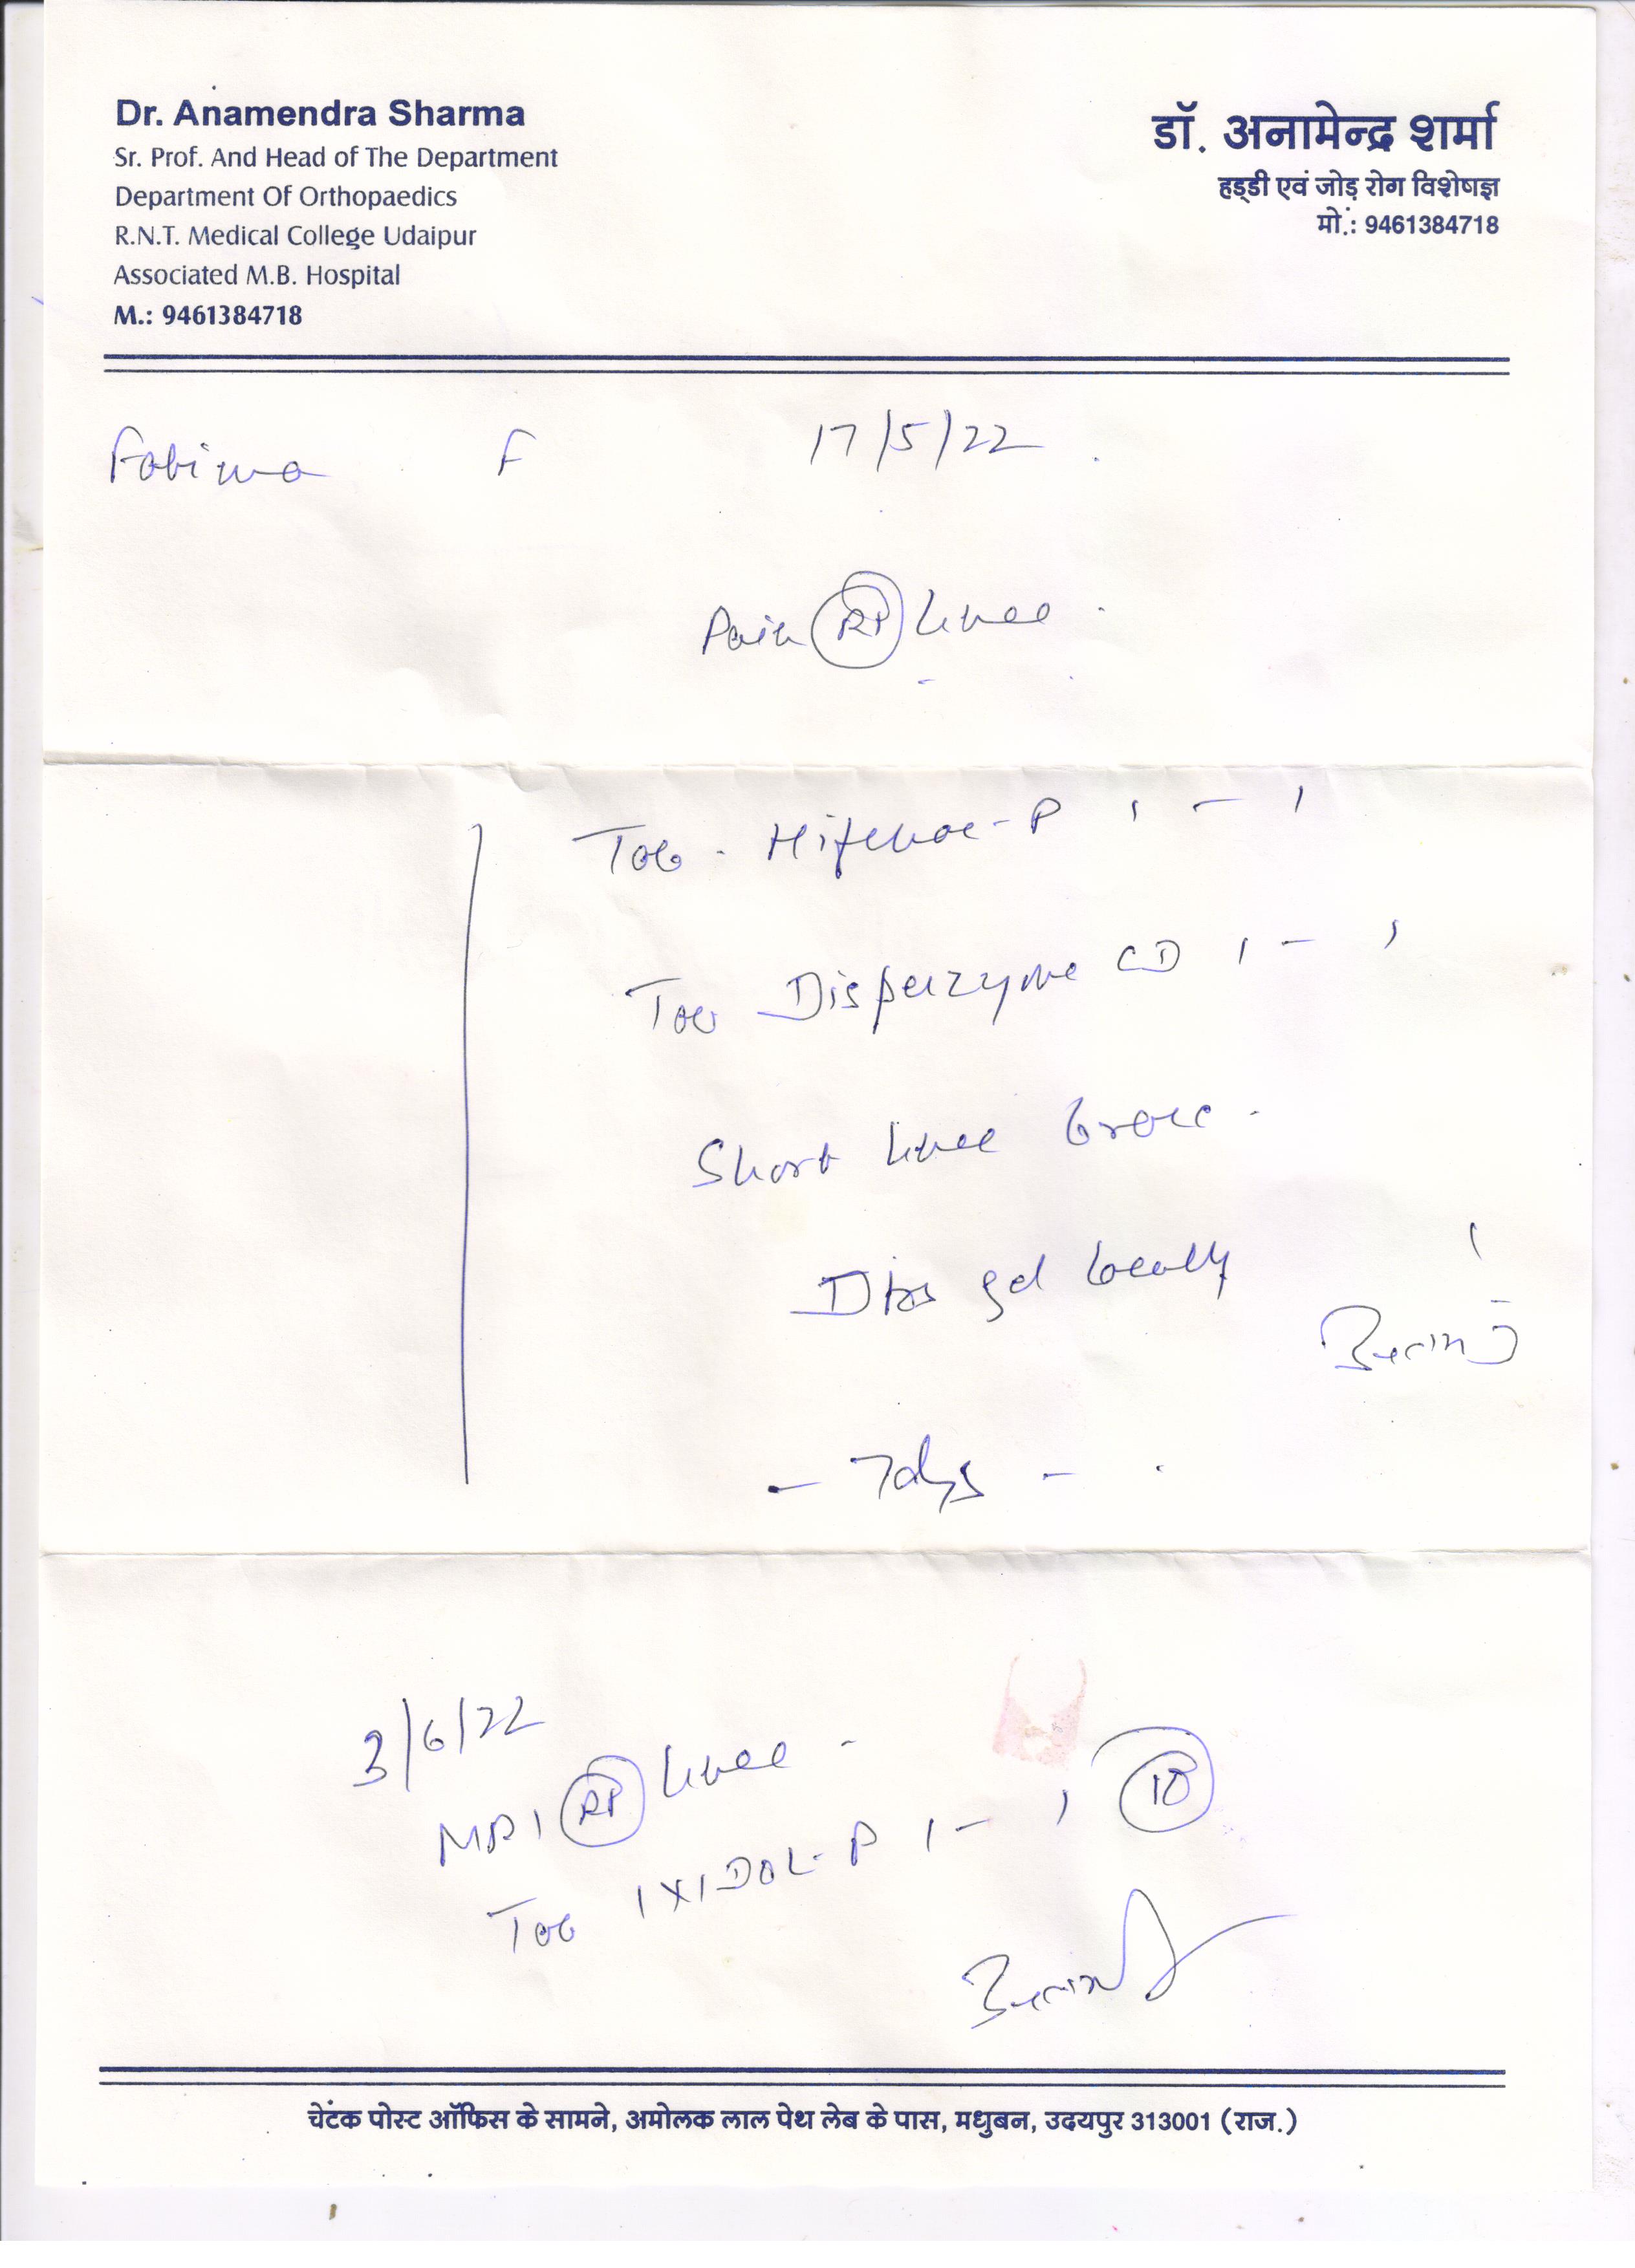 Dr. Anamendra Sharma
Sr. Prof. And Head of The Department
Department Of Orthopaedics
R.N.T. Medical College Udaipur
Associated M.B. Hospital
M.: 9461384718
डॉ. अनामेन्द्र शर्मा
हड्डी एवं जोड़ रोग विशेषज्ञ
मो.: 9461384718
Fatima F 17/5/22
Pain Rt knee
Tab. Hifenac-P 1 - 1
Tab Disperzyme CD 1 - 1
Short knee brace
gel locally
- 7 days -
3/6/22
MRI Rt knee
Tab IXIDOL-P 1 - 1 10
चेटक पोस्ट ऑफिस के सामने, अमोलक लाल पेथ लेब के पास, मधुबन, उदयपुर 313001 (राज.)